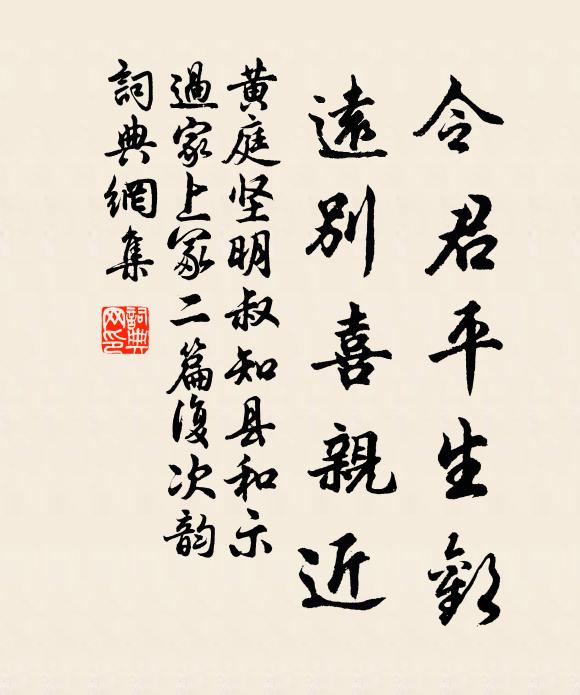 令君平生歡
遠別喜親近
黄庭坚明叔知县和示
過家上冢二篇復次韵
詞典網集
詞典网印